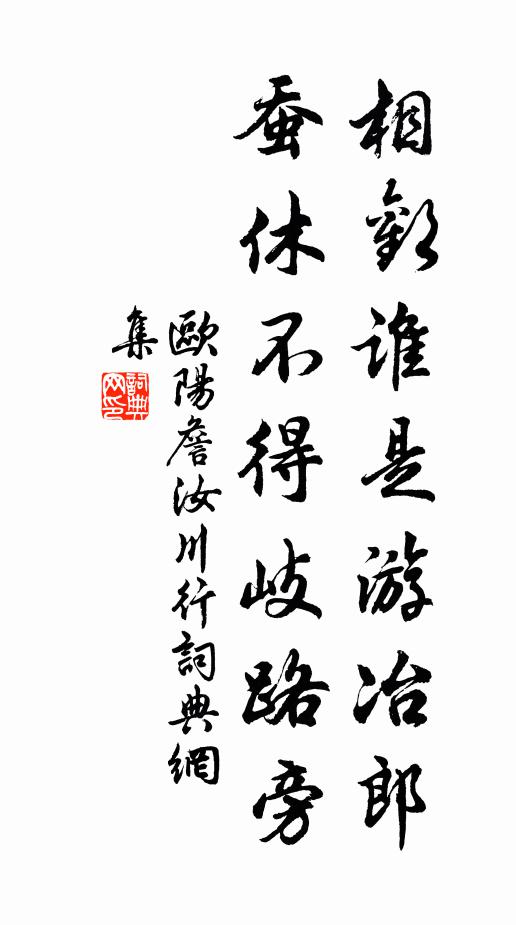 相歡誰是游冶郎
蚕休不得岐路旁
歐陽詹汝川行詞典網
集
詞典
网印